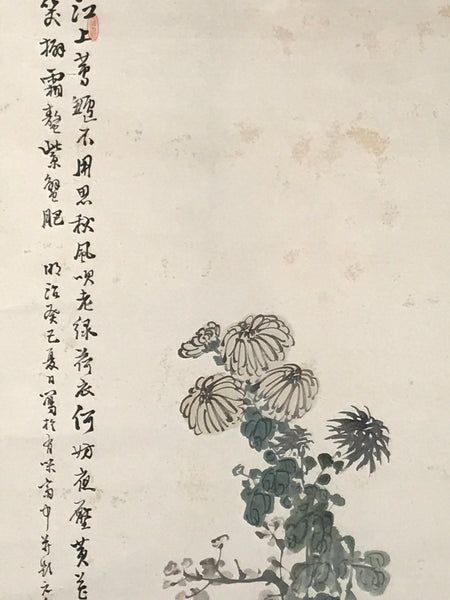 江上蓴鱸不用思秋風吹老綠荷衣何妨夜壓黄花
笑擘霜螯紫蟹肥 明治癸巳夏日寫於有味斎中并題